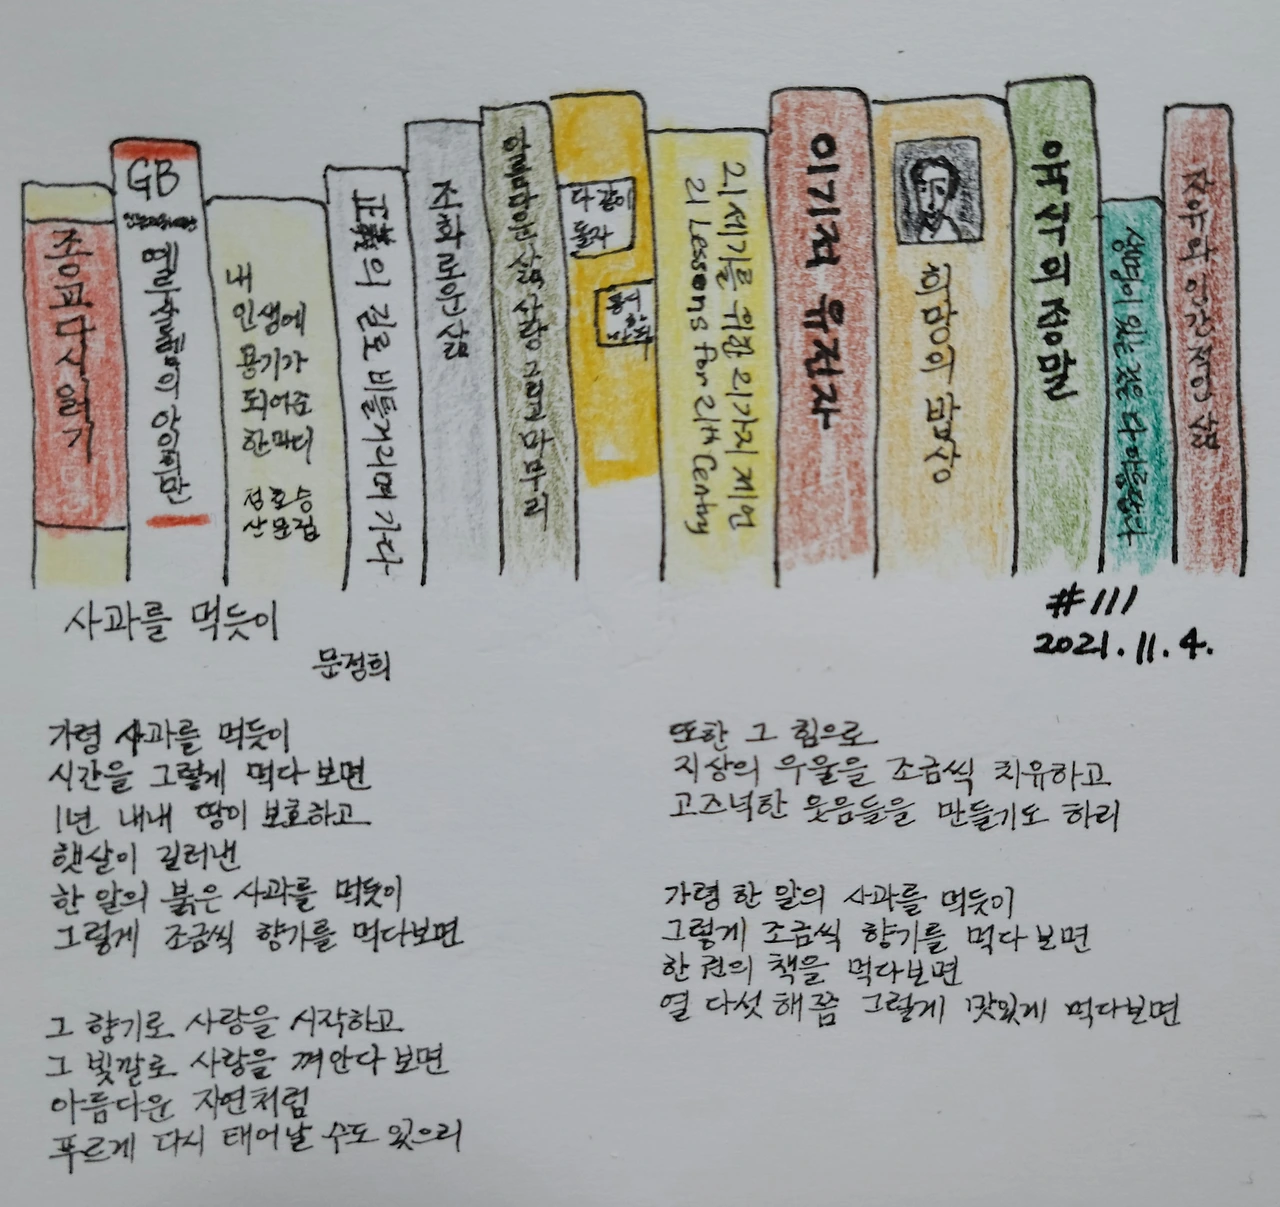 종교 다시 읽기
GB
예루살렘의 아이히만
내
인생에
용기가
되어준
한마디
정호승
산문집
正義의 길로 비틀거리며 가다
지학래의 삶
사랑 그리고 마무리
다 같이
돌자
21세기를 위한 21가지 제언
21 Lessons for 21th Centry
이기적 유전자
희망의 밥상
역사의 종말
생명이 있는 것은 다 아름답다
자유와 인간적인 삶
#111
2021.11.4.
사과를 먹듯이
문정희
가령 사과를 먹듯이
시간을 그렇게 먹다보면
1년 내내 땅이 보호하고
햇살이 길러낸
한 알의 붉은 사과를 먹듯이
그렇게 조금씩 향기를 먹다보면
그 향기로 사랑을 시작하고
그 빛깔로 사랑을 껴안다 보면
아름다운 자연처럼
푸르게 다시 태어날 수도 있으리
또한 그 힘으로
지상의 우울을 조금씩 치유하고
고즈넉한 웃음들을 만들기도 하리
가령 한 알의 사과를 먹듯이
그렇게 조금씩 향기를 먹다보면
한 권의 책을 먹다보면
열 다섯 해쯤 그렇게 맛있게 먹다보면